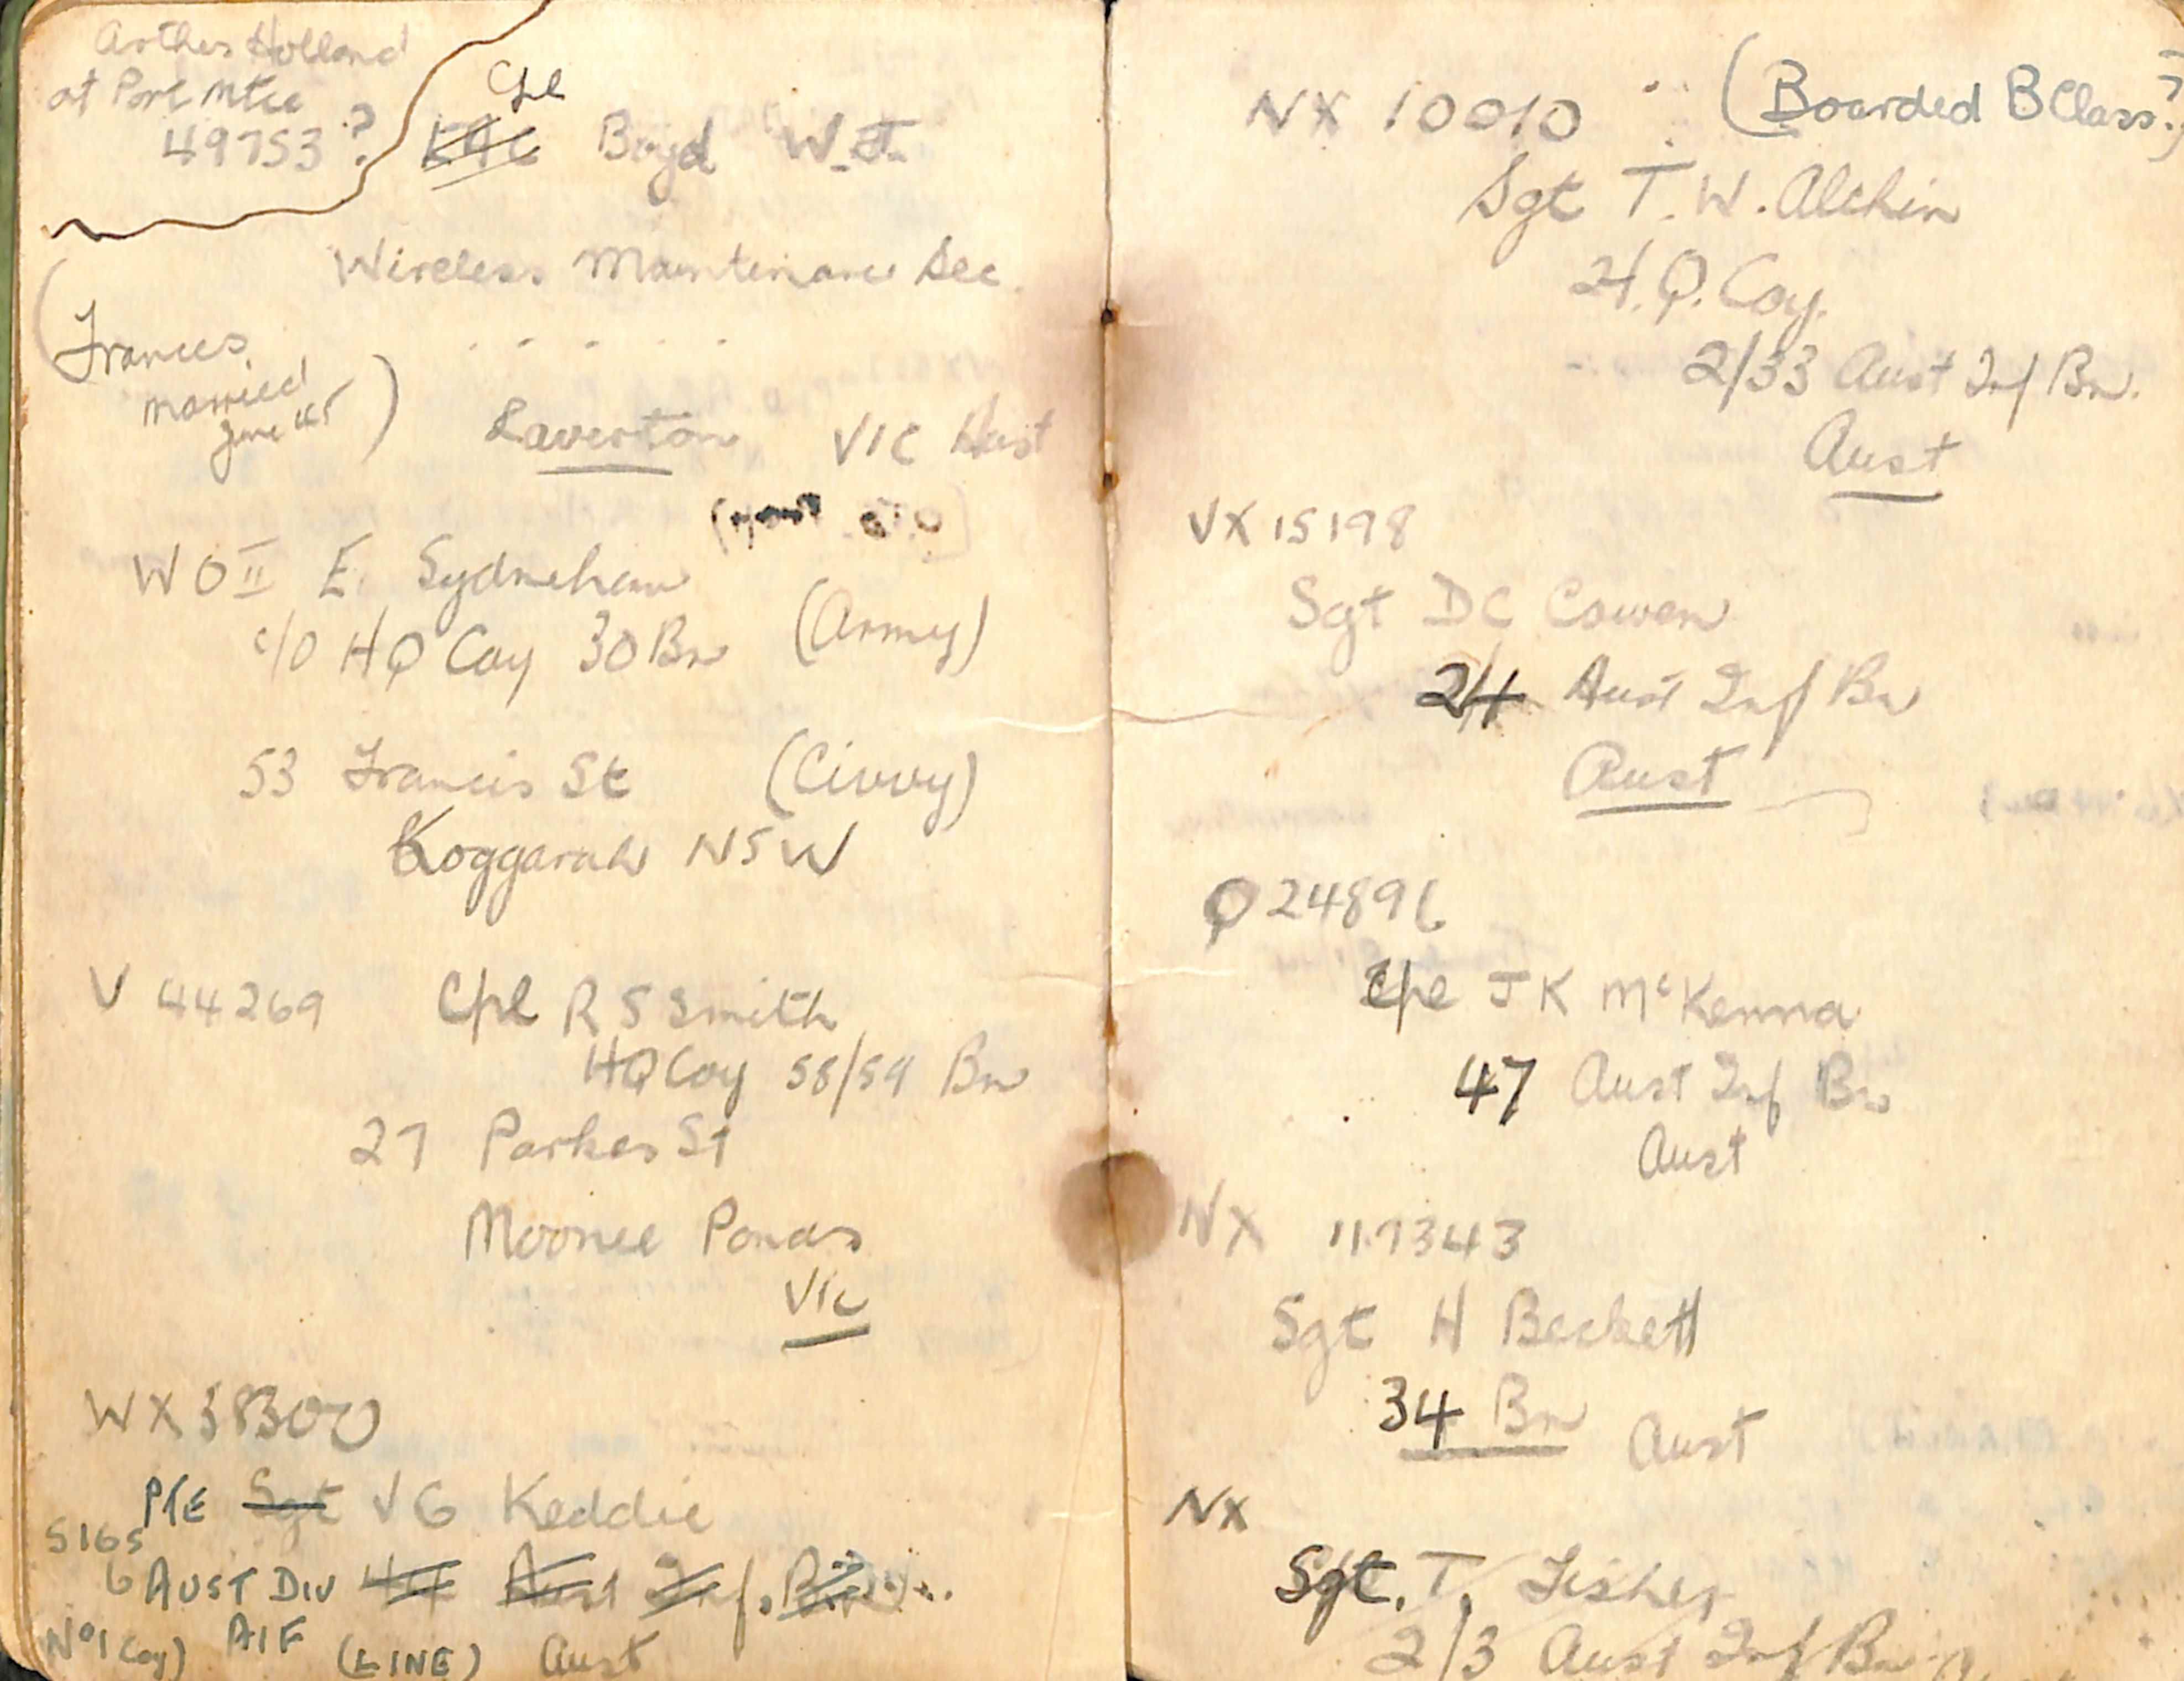 Arthur Holland
at Port Mtce
49753 ?
Cpl
LAC Boyd W.J.
Wireless Maintenance Sec.
(Frances
married
June 45)
Laverton VIC Aust
WO II E. Sydneham
c/o HQ Coy 30 Bn (Army)
53 Francis St (Civvy)
Koggarah NSW
V 44269 Cpl R S Smith
HQ Coy 58/59 Bn
27 Parkes St
Moonee Ponds
Vic
WX38300
PTE Sgt V G Keddie
SIGS
6 AUST DIV 44 Aust Inf. Bn
No 1 Coy) AIF (LINE) Aust
NX 10010 (Boarded B Class?)
Sgt T. W. Alchin
H.Q. Coy.
2/33 Aust Inf Bn.
Aust
VX 15198
Sgt DC Cowen
24 Aust Inf Bn
Aust
Q 24896
Cpl J K McKenna
47 Aust Inf Bn
Aust
NX 117343
Sgt H Beckett
34 Bn Aust
NX
Sgt. T. Fisher
2/3 Aust Inf Bn